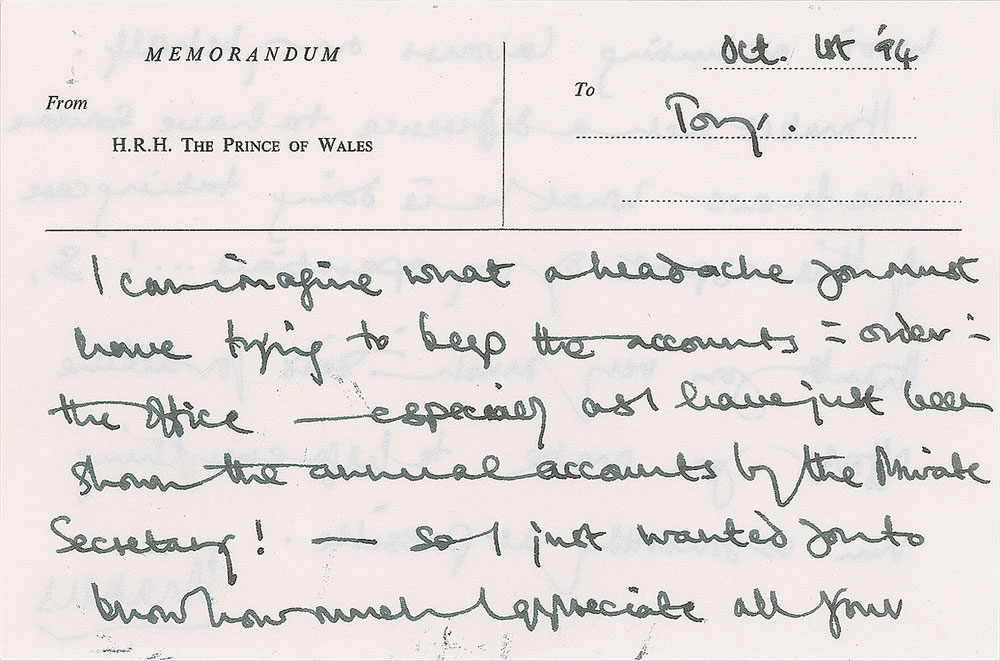 MEMORANDUM
From
H.R.H. THE PRINCE OF WALES
Oct. 1st '94
To
Tony.
I can imagine what a headache you must
have trying to keep the accounts in order in
the office — especially as I have just been
shown the annual accounts by the Private
Secretary! — so I just wanted you to
know how much I appreciate all your